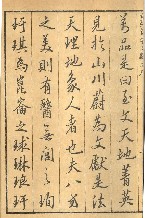 蓋品是向至文天地菁英
見於山川蔚為文獻是法
天理地象人者也夫八方
之美則有醫無閭之珣
玕琪為崑崙之球琳琅玕